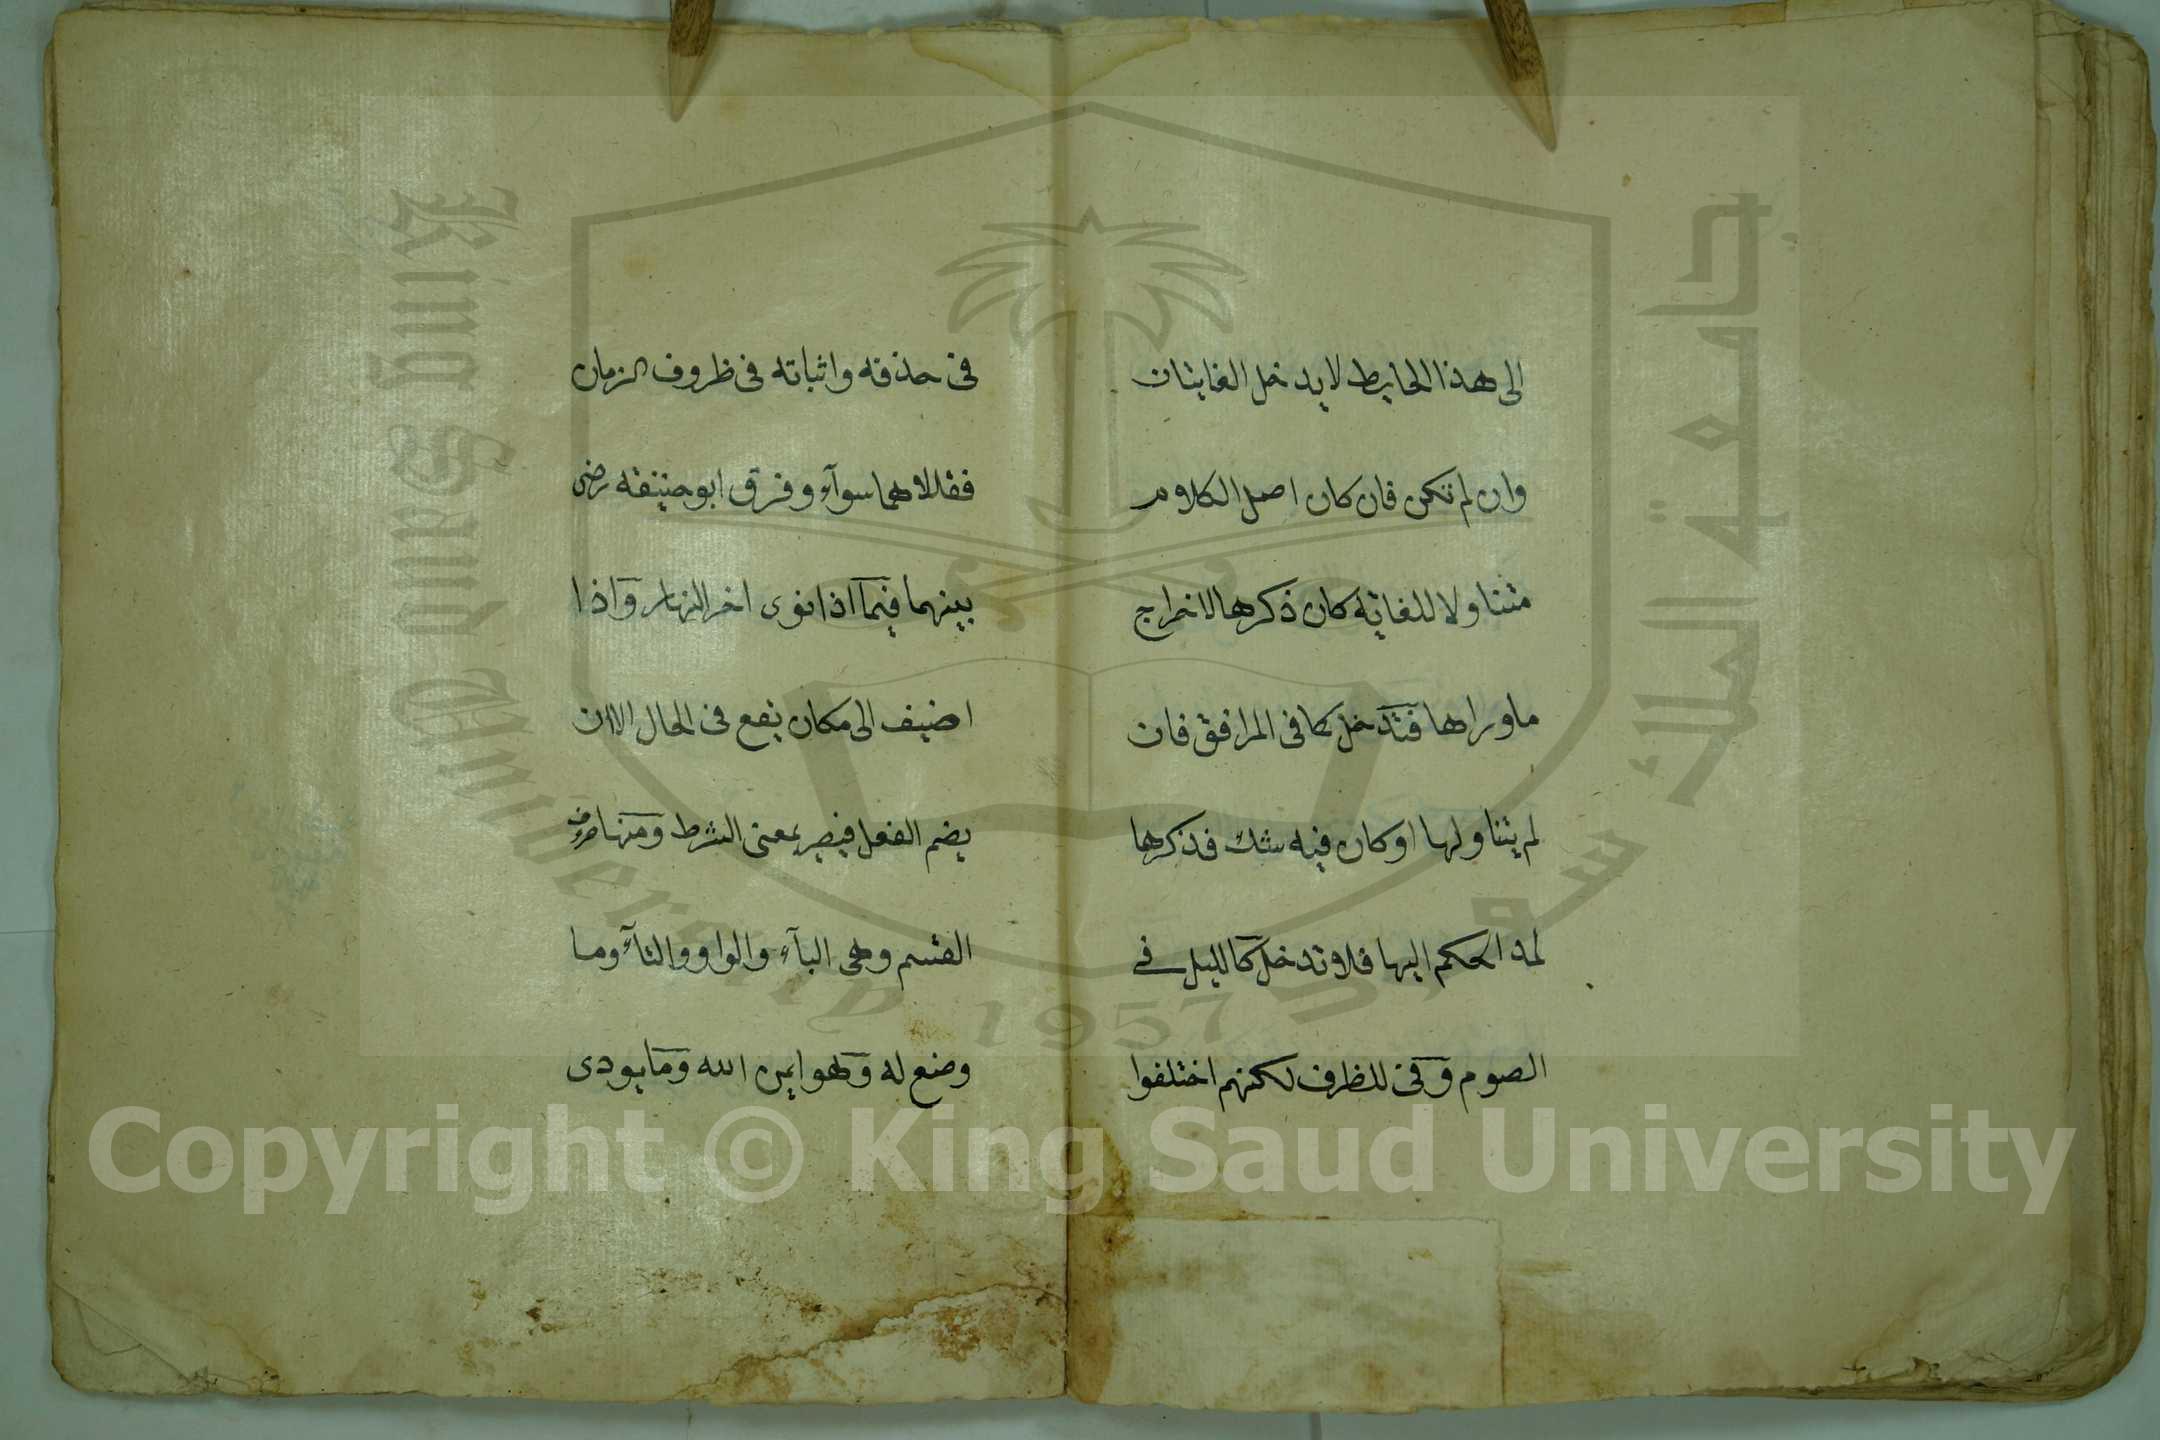 الى هذا الحايط لا يدخل الغايتان
وان لم تكن فان كان اصل الكلام
متناولا للغاية كان ذكرها لاخراج
ماوراها فتدخل كما في المرافق فان
لم يتناولها او كان فيه شك فذكرها
لمد الحكم اليها فلا تدخل كالليل في
الصوم وفى للظرف لكنهم اختلفوا
فى حذفه واثباته فى ظروف الزمان
فقالا هما سوآء وفرق ابو حنيفه رضى
بينهما فيما اذا نوى اخر النهار واذا
اضيف الى مكان يقع فى الحال الا ان
يضم الفعل فيصير بمعنى الشرط ومنها حروف
القسم وهى البآء والواو والتآء وما
وضع له وهو ايمن الله وما يودى
جامعة الملك سعود
King Saud University 1957
Copyright © King Saud University